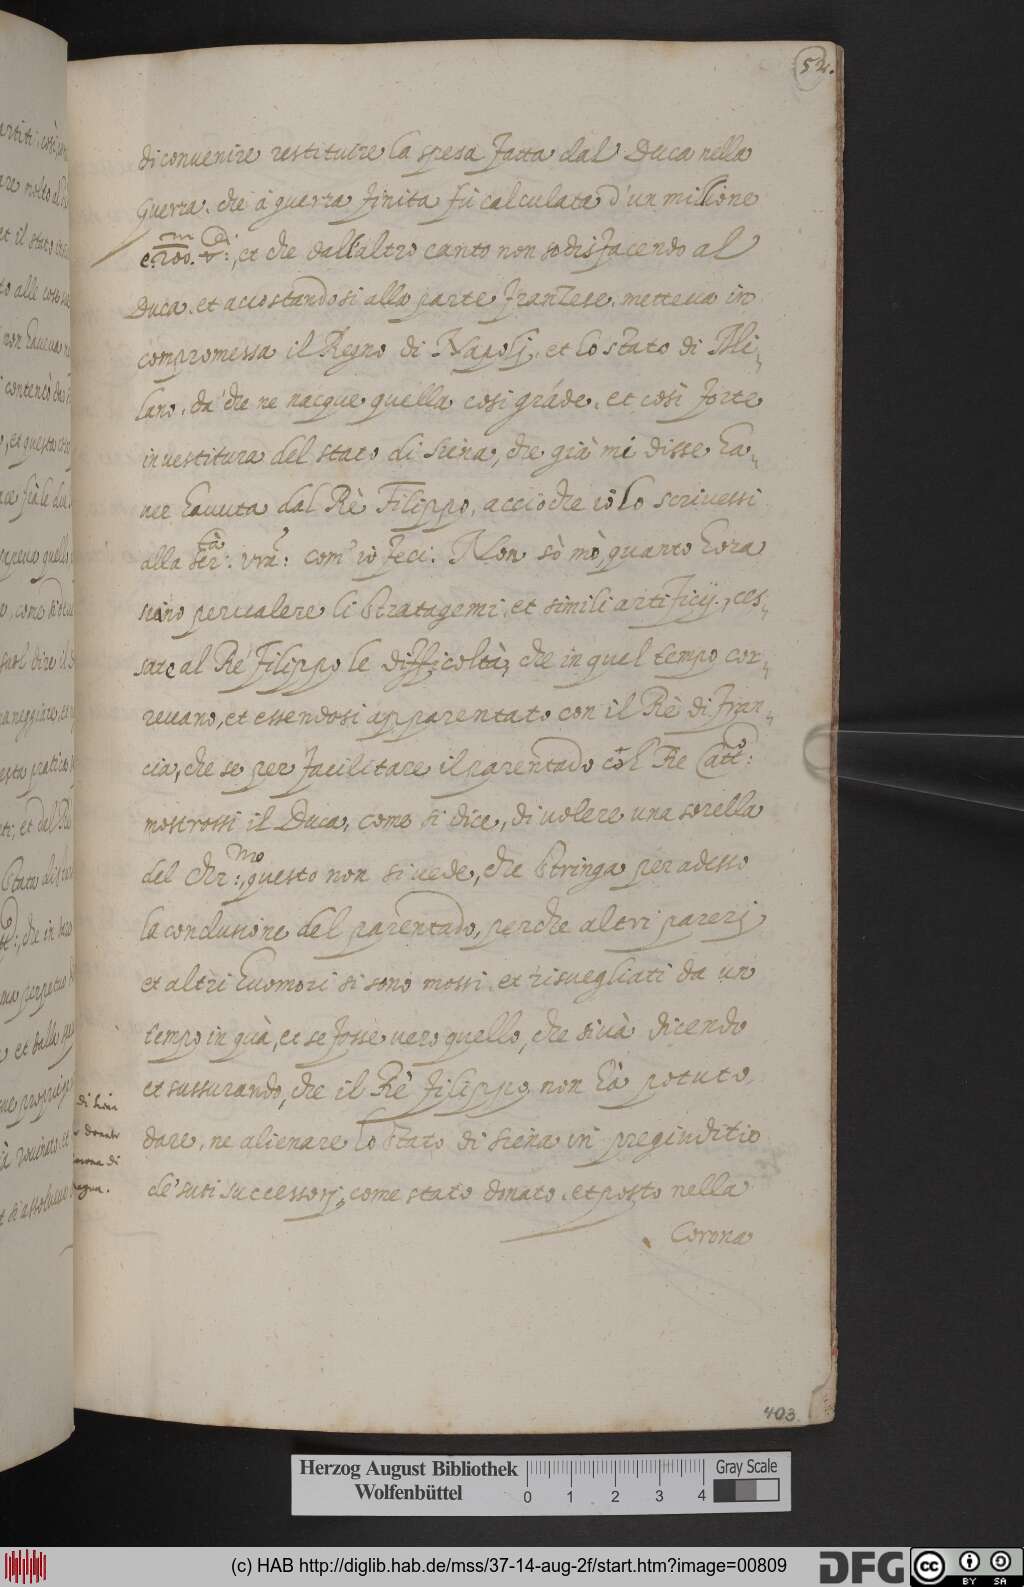 52.
di convenire restituire la spesa fatta dal Duca nella
guerra, che à guerra finita fù calculata d'un millione
e 200. et che dall'altro canto non sodisfacendo al
Duca, et accostandosi alla parte franzese, metteva in
compromessa il Regno di Napolj, et lo stato di Mi„
lano, da che ne nacque quella cosi gráde, et così forte
investitura del stato di Siena, che già mi disse ha„
ver havuta dal Rè Filippo, acciòche io lo scrivessi
alla Ser:tà vra: com' io feci. Non sò mò, quanto hora
siano per valere li stratagemi, et simili artificij, ces„
sate al Rè Filippo le difficoltà, che in quel tempo cor„
revano, et essendosi apparentato con il Rè di Fran„
cia, che se per facilitare il parentado col Re Catt:co
mostrossi il Duca, come si dice, di volere una sorella
del Chr:mo, questo non si vede, che stringa per adesso
la conclusione del parentado, perche altri parerj
et altri huomori si sono mossi, et risuegliati da un
tempo in quà, et se fosse vero quello, che si và dicendo
et sussurando, che il Rè Filippo non hà potuto
dare, ne alienare lo stato di Siena in pregiuditio
de' suoi successorj, come stato donato, et posto nella
Corona
403
Herzog August Bibliothek
Wolfenbüttel
0 1 2 3 4
Gray Scale
(c) HAB http://diglib.hab.de/mss/37-14-aug-2f/start.htm?image=00809
DFG
cc
BY SA